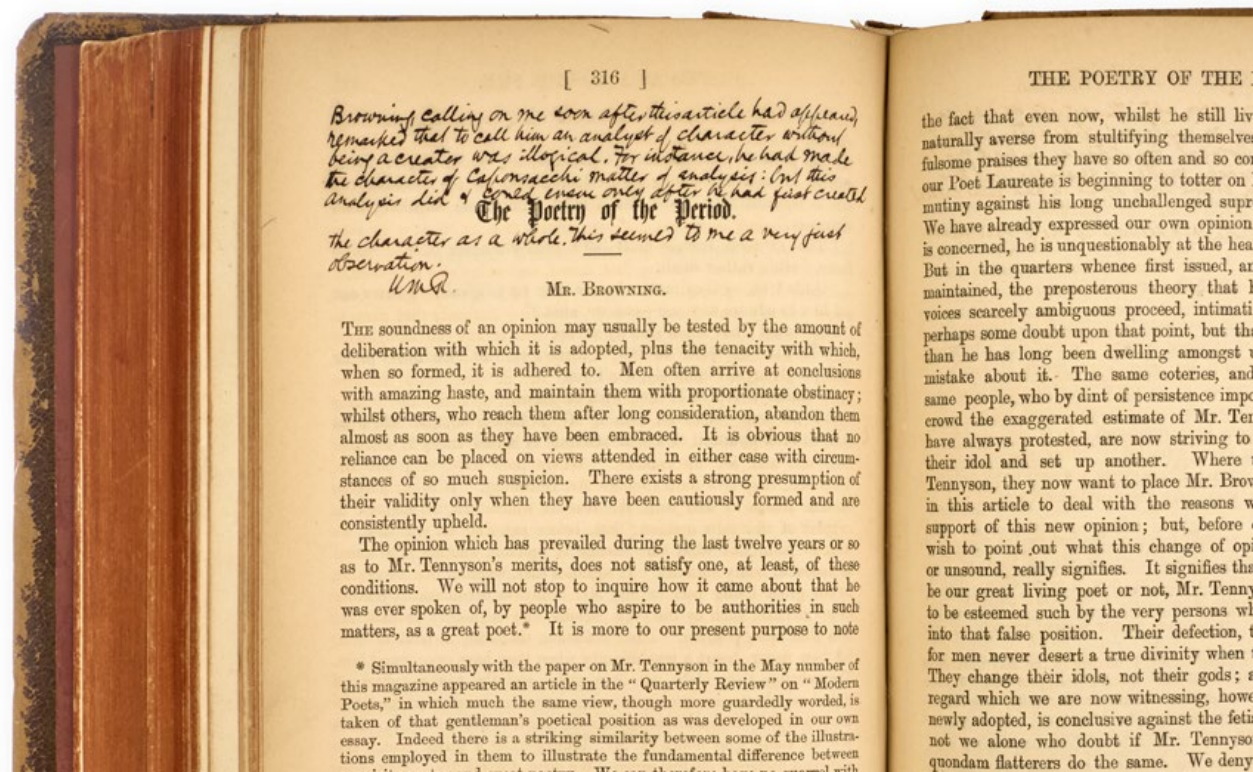 [ 316 ]
Browning calling on me soon after this article had appeared,
remarked that to call him an analyst of character without
being a creater was illogical. For instance, he had made
the character of Caponsacchi matter of analysis: but this
analysis did & could ensue only after he had first created
The Poetry of the Period.
the character as a whole. This seemed to me a very just
observation.
W.M.R.
MR. BROWNING.
THE soundness of an opinion may usually be tested by the amount of
deliberation with which it is adopted, plus the tenacity with which,
when so formed, it is adhered to. Men often arrive at conclusions
with amazing haste, and maintain them with proportionate obstinacy;
whilst others, who reach them after long consideration, abandon them
almost as soon as they have been embraced. It is obvious that no
reliance can be placed on views attended in either case with circum-
stances of so much suspicion. There exists a strong presumption of
their validity only when they have been cautiously formed and are
consistently upheld.
The opinion which has prevailed during the last twelve years or so
as to Mr. Tennyson's merits, does not satisfy one, at least, of these
conditions. We will not stop to inquire how it came about that he
was ever spoken of, by people who aspire to be authorities in such
matters, as a great poet.* It is more to our present purpose to note
* Simultaneously with the paper on Mr. Tennyson in the May number of
this magazine appeared an article in the "Quarterly Review" on "Modern
Poets," in which much the same view, though more guardedly worded, is
taken of that gentleman's poetical position as was developed in our own
essay. Indeed there is a striking similarity between some of the illustra-
tions employed in them to illustrate the fundamental difference between
THE POETRY OF THE
the fact that even now, whilst he still liv
naturally averse from stultifying themselve
fulsome praises they have so often and so con
our Poet Laureate is beginning to totter on
mutiny against his long unchallenged supr
We have already expressed our own opinion
is concerned, he is unquestionably at the hea
But in the quarters whence first issued, an
maintained, the preposterous theory that
voices scarcely ambiguous proceed, intimati
perhaps some doubt upon that point, but tha
than he has long been dwelling amongst
mistake about it. The same coteries, and
same people, who by dint of persistence impo
crowd the exaggerated estimate of Mr. Ten
have always protested, are now striving to
their idol and set up another. Where
Tennyson, they now want to place Mr. Brow
in this article to deal with the reasons w
support of this new opinion; but, before
wish to point out what this change of opi
or unsound, really signifies. It signifies tha
be our great living poet or not, Mr. Tenny
to be esteemed such by the very persons wh
into that false position. Their defection,
for men never desert a true divinity when
They change their idols, not their gods; a
regard which we are now witnessing, howe
newly adopted, is conclusive against the feti
not we alone who doubt if Mr. Tennyso
quondam flatterers do the same. We deny